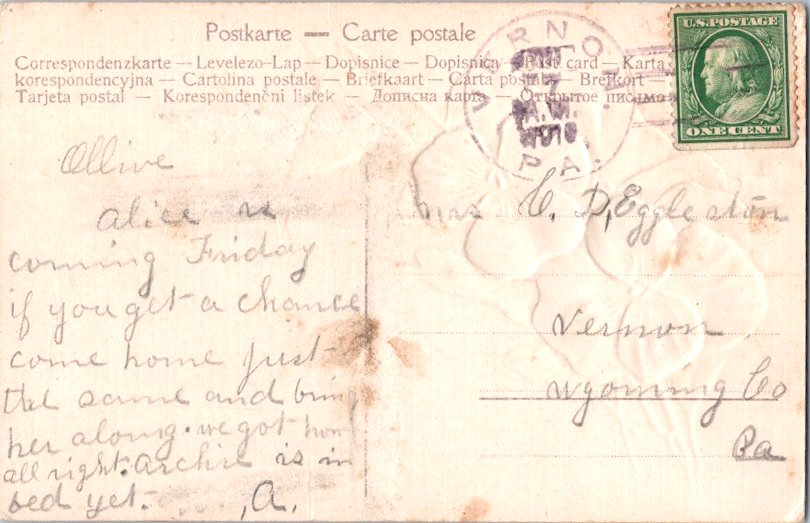 Postkarte — Carte postale
Correspondenzkarte — Levelezo-Lap — Dopisnice — Dopisnica — Post card — Karta
korespondencyjna — Cartolina postale — Briefkaart — Carta postala — Brefkort —
Tarjeta postal — Korespondenčni listek — Дописна карта — Открытое письмо
VERNON
7
A.M.
1910
PA.
U.S. POSTAGE
ONE CENT
Ollive
Alice is
coming Friday
if you get a chance
come home just
the same and bring
her along. we got home
all right. Archie is in
bed yet. A.
Mrs C. D. Eggleston
Vernon
Wyoming Co
Pa